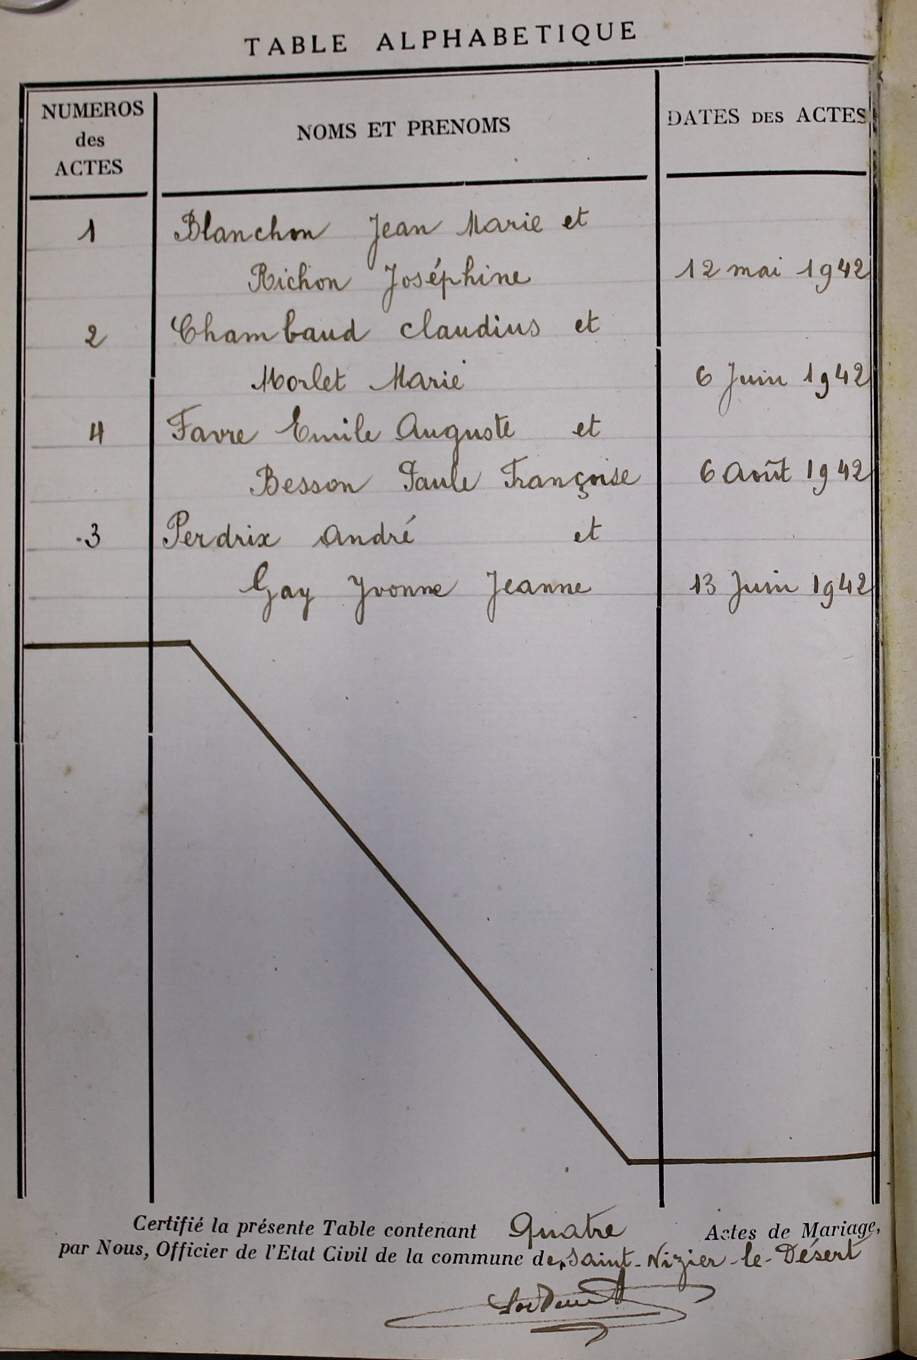 TABLE ALPHABETIQUE
NUMEROS
des
ACTES
NOMS ET PRENOMS
DATES DES ACTES
1 Blanchon Jean Marie et
Richon Joséphine 12 mai 1942
2 Chambaud Claudius et
Morlet Marie 6 Juin 1942
4 Favre Emile Auguste et
Besson Paule Françoise 6 Août 1942
3 Perdrix André et
Gay Yvonne Jeanne 13 Juin 1942
Certifié la présente Table contenant Quatre Actes de Mariage,
par Nous, Officier de l'Etat Civil de la commune de Saint-Nizier-le-Désert